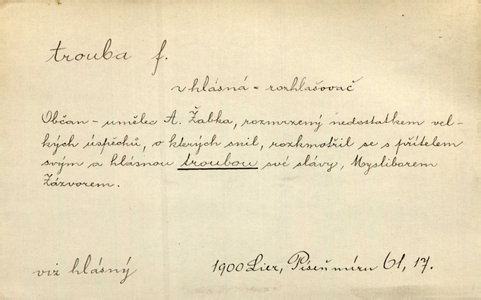 trouba f.
v hlásná = rozhlašovač
Občan-umělec A. Žabka, rozmrzený nedostatkem vel-
kých úspěchů, o kterých snil, rozkmotřil se s přítelem
svým a hlásnou troubou své slávy, Mysliborem
Zázvorem.
viz hlásný
1900 Lier, Píseň míru 61, 17.